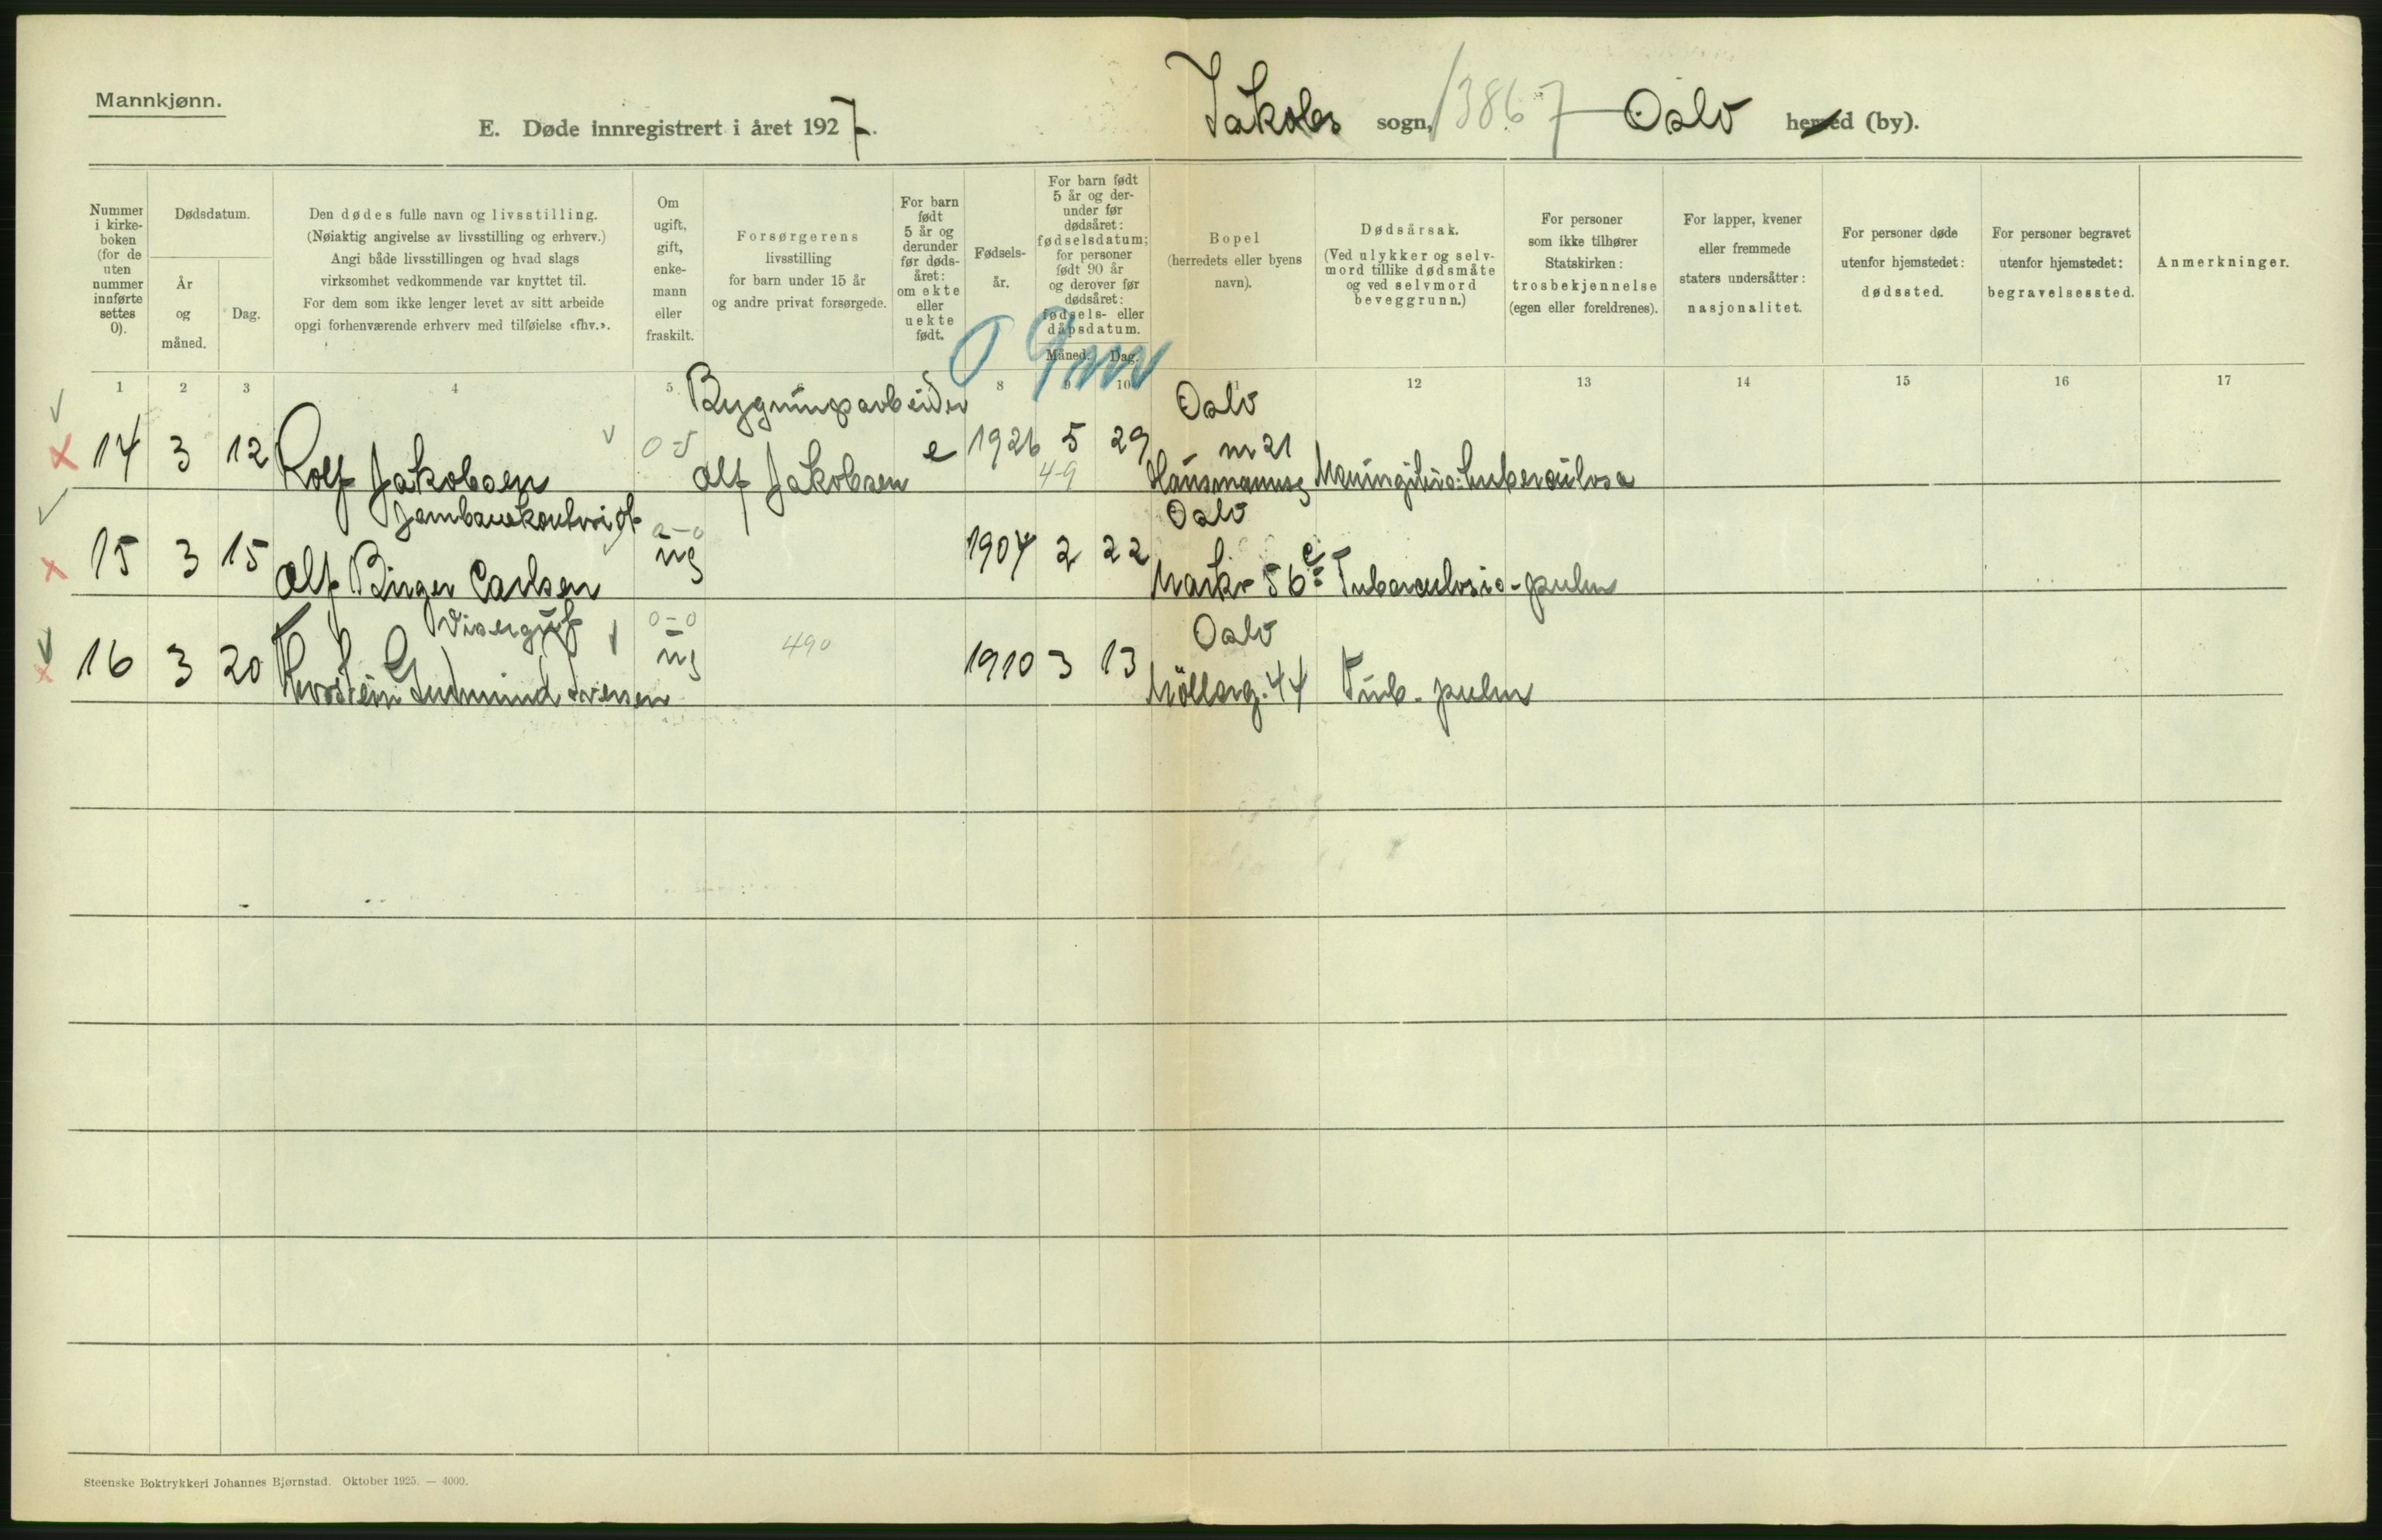 Mannkjønn.
E. Døde innregistrert i året 1927.
Jakobs sogn, 13867 Oslo herred (by).
Nummer i kirkeboken (for de uten nummer innførte settes 0).
Dødsdatum.
År og måned.
Dag.
Den dødes fulle navn og livsstilling.
(Nøiaktig angivelse av livsstilling og erhverv.)
Angi både livsstillingen og hvad slags
virksomhet vedkommende var knyttet til.
For dem som ikke lenger levet av sitt arbeide
opgi forhenværende erhverv med tilføielse «fhv.».
Om ugift, gift, enkemann eller fraskilt.
Forsørgerens
livsstilling
for barn under 15 år
og andre privat forsørgede.
For barn født 5 år og derunder før dødsåret: om ekte eller uekte født.
Fødselsår.
For barn født 5 år og derunder før dødsåret: fødselsdatum; for personer født 90 år og derover før dødsåret: fødsels- eller dåpsdatum.
Måned. Dag.
Bopel
(herredets eller byens
navn).
Dødsårsak.
(Ved ulykker og selvmord tillike dødsmåte og ved selvmord beveggrunn.)
For personer
som ikke tilhører
Statskirken:
trosbekjennelse
(egen eller foreldrenes).
For lapper, kvener
eller fremmede
staters undersåtter:
nasjonalitet.
For personer døde
utenfor hjemstedet:
dødssted.
For personer begravet
utenfor hjemstedet:
begravelsessted.
Anmerkninger.
1 2 3 4 5 8 9 10 11 12 13 14 15 16 17
Bygningsarbeider Oslo
14 3 12 Rolf Jakobsen 0-5 Alf Jakobsen e 1926 5 29 nr 21
4-9 Hausmannsg Meningitis tuberculosa
Oslo
15 3 15 Alf Birger Carlsen ug 1904 2 22 Markv 56 c Tuberculosis-pulm
Visergut 0-0 Oslo
16 3 20 Thorstein Gudmund Iversen ug 490 1910 3 13 Möllerg. 44 Tub. pulm
Steenske Boktrykkeri Johannes Bjørnstad. Oktober 1925. — 4000.